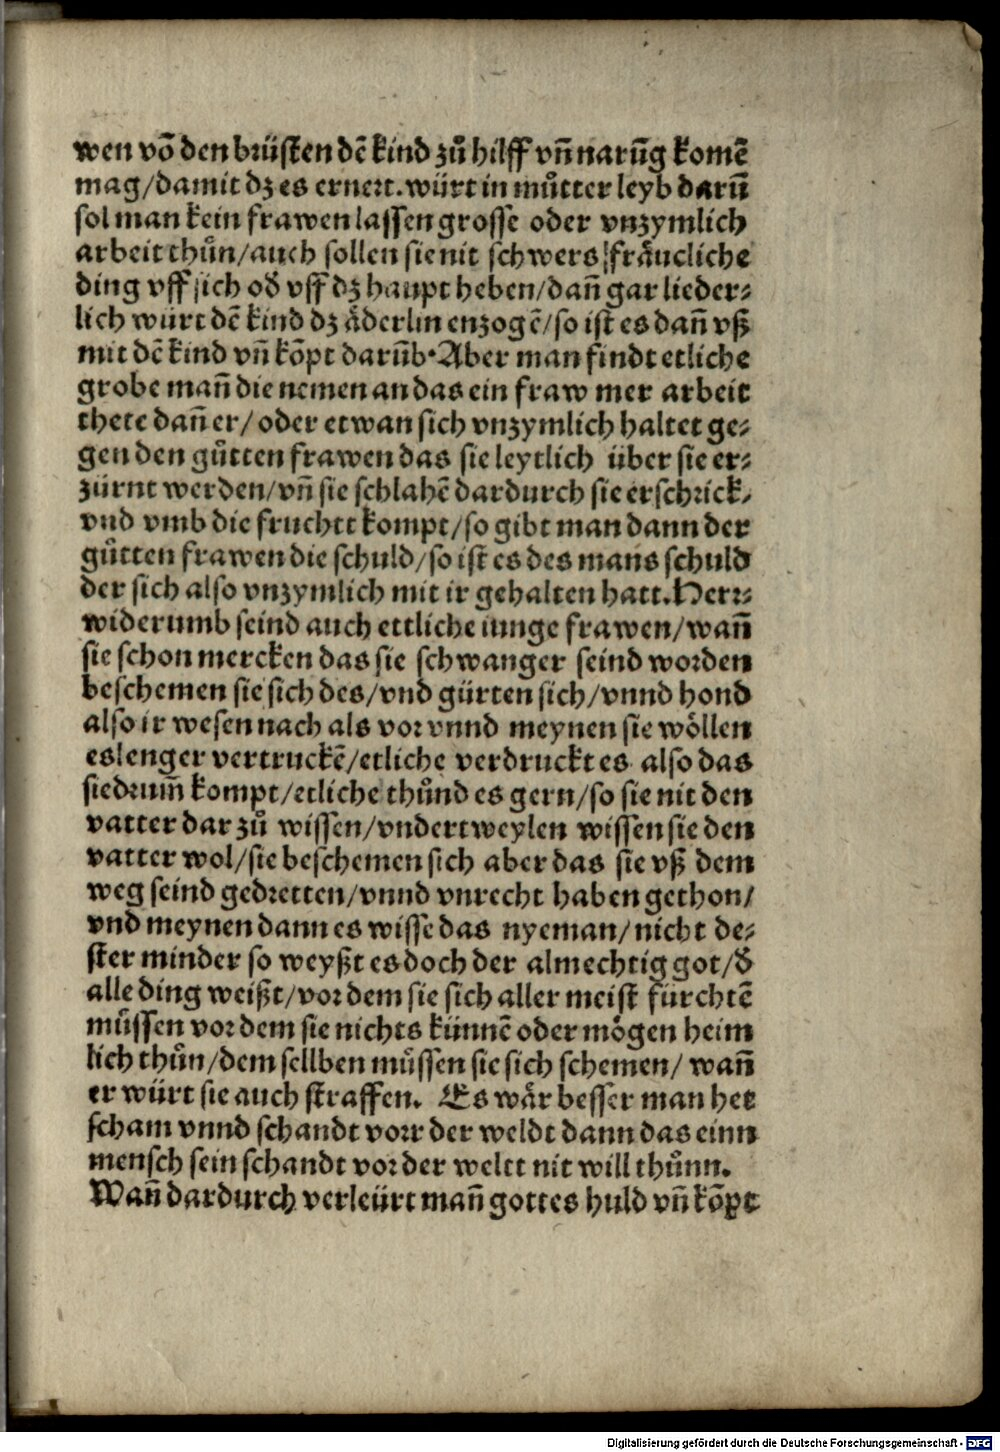 wen vō den brüsten dē kind zů hilff vn̄ narūg komē
mag/damit dz es ernert. würt in můtter leyb darū
sol man kein frawen lassen grosse oder vnzymlich
arbeit thůn/auch sollen sie nit schwers fräueliche
ding vff sich od vff dz haupt heben/dan̄ gar lieder⸗
lich würt dē kind dz äderlin enzogē/so ist es dan̄ vß
mit dē kind vn̄ kōpt darūb. Aber man findt etliche
grobe man̄ die nemen an das ein fraw mer arbeit
thete dan̄ er/oder etwan sich vnzymlich haltet ge⸗
gen den gůtten frawen das sie leytlich über sie er⸗
zürnt werden/vn̄ sie schlahē dardurch sie erschrick⸗
vnd vmb die fruchtt kompt/so gibt man dann der
gůtten frawen die schuld/so ist es des mans schuld
der sich also vnzymlich mit ir gehalten hatt. Herr⸗
widerumb seind auch ettliche iunge frawen/wan̄
sie schon mercken das sie schwanger seind worden
beschemen sie sich des/vnd gürten sich/vnnd hond
also ir wesen nach als vor vnnd meynen sie wöllen
es lenger vertruckē/etliche verdruckt es also das
sie drum̄ kompt/etliche thůnd es gern/so sie nit den
vatter dar zů wissen/vndertweylen wissen sie den
vatter wol/sie beschemen sich aber das sie vß dem
weg seind gedretten/vnnd vnrecht haben gethon/
vnd meynen dann es wisse das nyeman/nicht de⸗
ster minder so weyßt es doch der almechtig got/d
alle ding weißt/vor dem sie sich aller meist fürchtē
müssen vor dem sie nichts künnē oder mögen heim
lich thůn/dem sellben müssen sie sich schemen/ wan̄
er würt sie auch straffen. Es wär besser man het
scham vnnd schandt vorr der weldt dann das einn
mensch sein schandt vor der weltt nit will thůnn.
Wan̄ dardurch verleürt man̄ gottes huld vn̄ kōpt
Digitalisierung gefördert durch die Deutsche Forschungsgemeinschaft - DFG